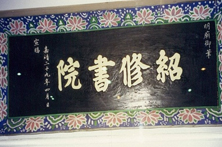 明廟御筆
紹修書院
嘉靖二十九年四月 日
宣賜